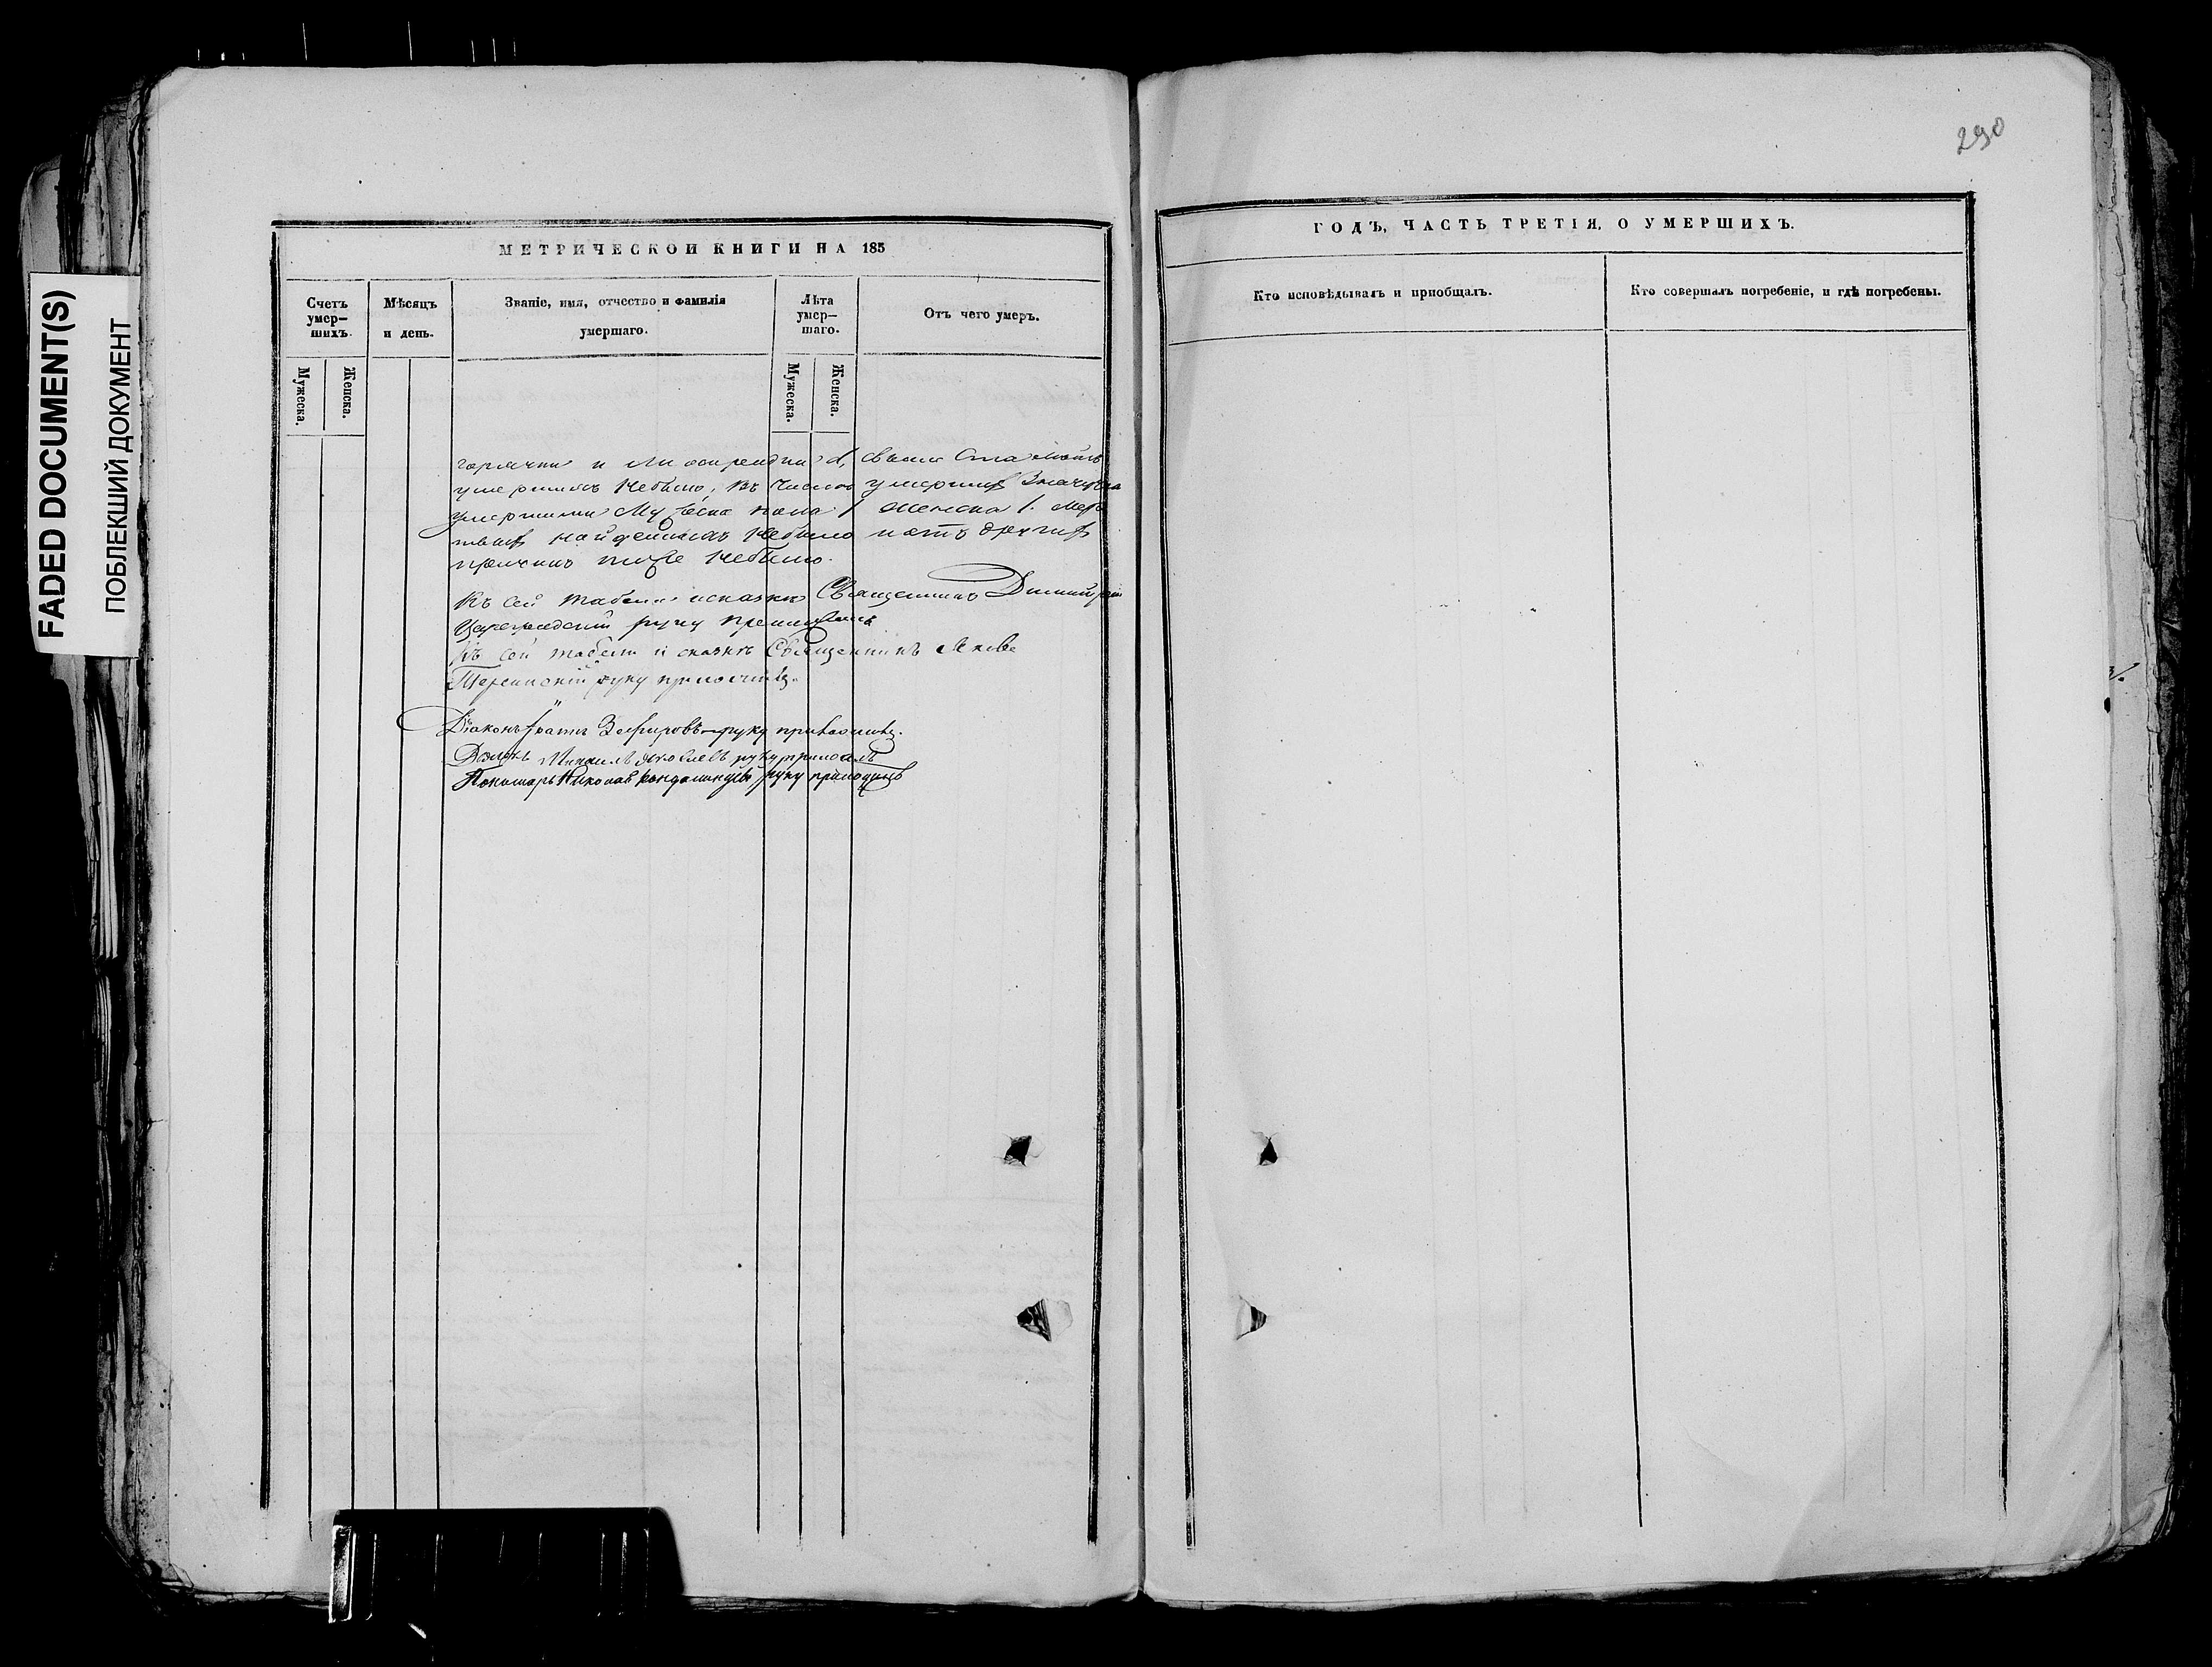 FADED DOCUMENT(S)
ПОБЛЕКШИЙ ДОКУМЕНТ
МЕТРИЧЕСКОЙ КНИГИ НА 185
Счетъ умер-
шихъ.
Мѣсяцъ
и день.
Званіе, имя, отчество и фамилія
умершаго.
Лѣта
умер-
шаго.
Отъ чего умеръ.
Мужеска.
Женска.
Мужеска.
Женска.
горячки и свыше ста лѣтъ
умершихъ небыло, въ числѣ умершихъ
умершими Мужеска пола 1 женска 1. Мер
твыхъ найденныхъ небыло и отъ другихъ
причинъ тоже небыло.
Къ сей табели и сказкѣ Священникъ Димитрій
руку приложилъ
Къ сей табели и сказкѣ Священникъ
руку приложилъ.
Діаконъ Зефировъ руку приложилъ.
Михаилъ руку приложилъ
Пономарь Николай руку приложилъ
290
ГОДЪ, ЧАСТЬ ТРЕТІЯ, О УМЕРШИХЪ.
Кто исповѣдывалъ и приобщалъ.
Кто совершалъ погребеніе, и гдѣ погребены.